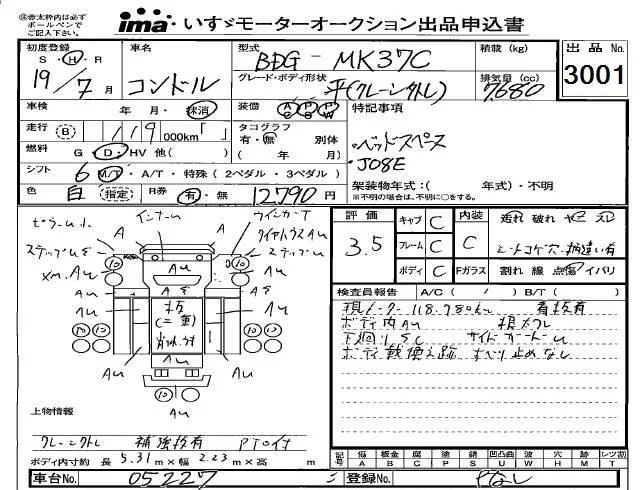 ※赤太枠内は必ずボールペンでご記入下さい。
ima いすゞモーターオークション出品申込書
初度登録 S・H・R 19/7月
車名 コンドル
型式 BDG-MK37C
グレード・ボディ形状 平(クレーン外し)
積載(kg)
排気量(cc) 7680
出品No. 3001
車検 年 月・抹消
装備 AC PS PW
特記事項
走行(B) 119 000km「 」
タコグラフ 有・無 別体 ( 年 月)
・ベッドスペース
・J08E
燃料 G・D・HV 他( )
シフト 6 M/T・A/T・特殊(2ペダル・3ペダル)
架装物年式:( 年式)・不明
※不明の場合は、不明に○をする。
色 白 (指定)
R券 有・無 12790円
ピラーUS インナーU ウインカーT
A A
ステップUS ステップU
XM. AU AU
AU
AU AS AU
AU AU
AU AU
AU
AU
評価 3.5
キャブ C
フレーム C
ボディ C
内装 C
Fガラス
汚れ 破れ ヤニ スレ
シートコゲ穴・柄違い有
割れ 線 点傷 イバリ
検査員報告 A/C ( / ) B/T ( )
現メーター 118.780km 看板有
ボディ内AU
下廻りSC サイドガードU
ボディ載換え跡 すべり止めなし
上物情報
クレーン外し 補強板有 PTO付
ボディ内寸約 長 5.31m×幅 2.23m×高 m
記号 傷A 板金B 腐C 塗P 錆S 凹凸曲U 波W 穴H 跡M レンズ割T
車台No. 05227
登録No. ナシ